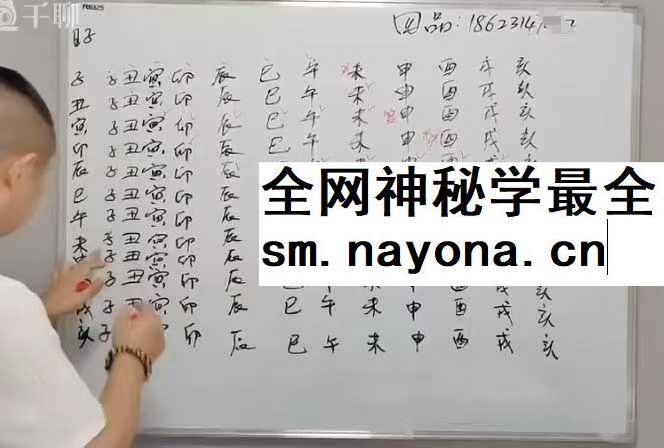 千聊
因品:18623147
子 子 丑 寅 卯 辰 巳 午 未 申 酉 戌 亥
丑 子 丑 寅 卯 辰 巳 午 未 申 酉 戌 亥
寅 子 丑 寅 卯 辰 巳 午 未 申 酉 戌 亥
卯 子 丑 寅 卯 辰 巳 午 未 申 酉 戌 亥
辰 子 丑 寅 卯 辰
巳 子 丑 寅 卯 辰
午 子 丑 寅 卯 辰
未 子 丑 寅 卯 辰
子 丑 寅 卯 辰
子 丑 寅 卯 辰 巳 午 未 申 酉 戌 亥
戌 子 丑 寅 卯 辰 巳 午 未 申 酉 戌 亥
亥 子 卯 辰 巳 午 未 申 酉 戌 亥
全网神秘学最全
sm.nayona.cn